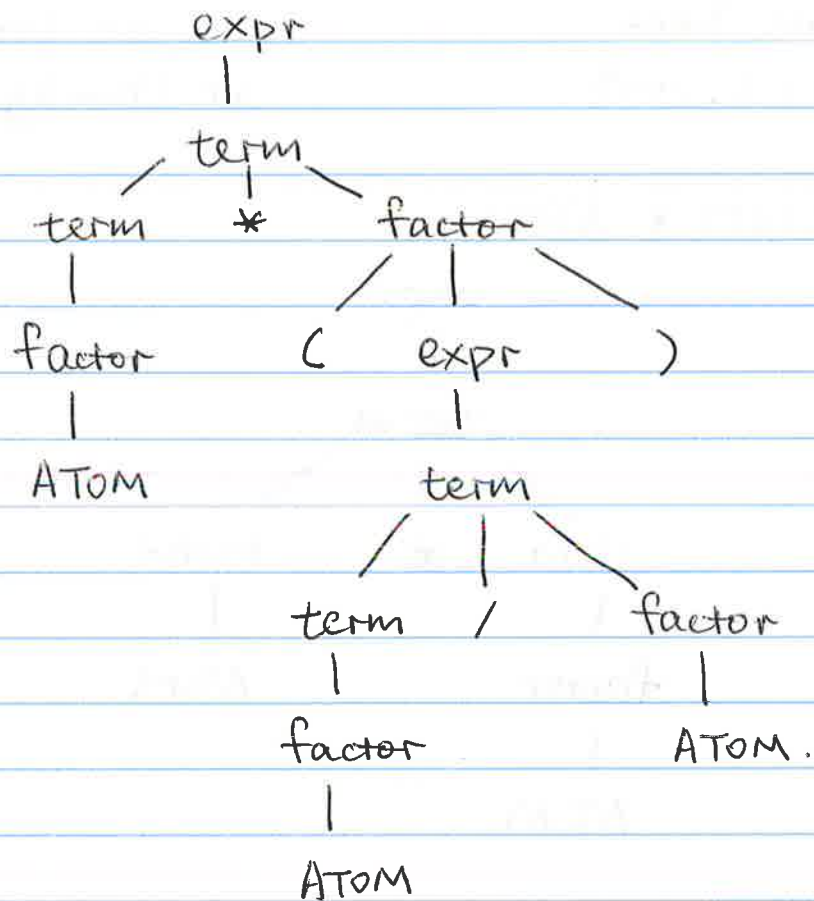 expr
term
term * factor
factor ( expr )
ATOM term
term / factor
factor ATOM.
ATOM